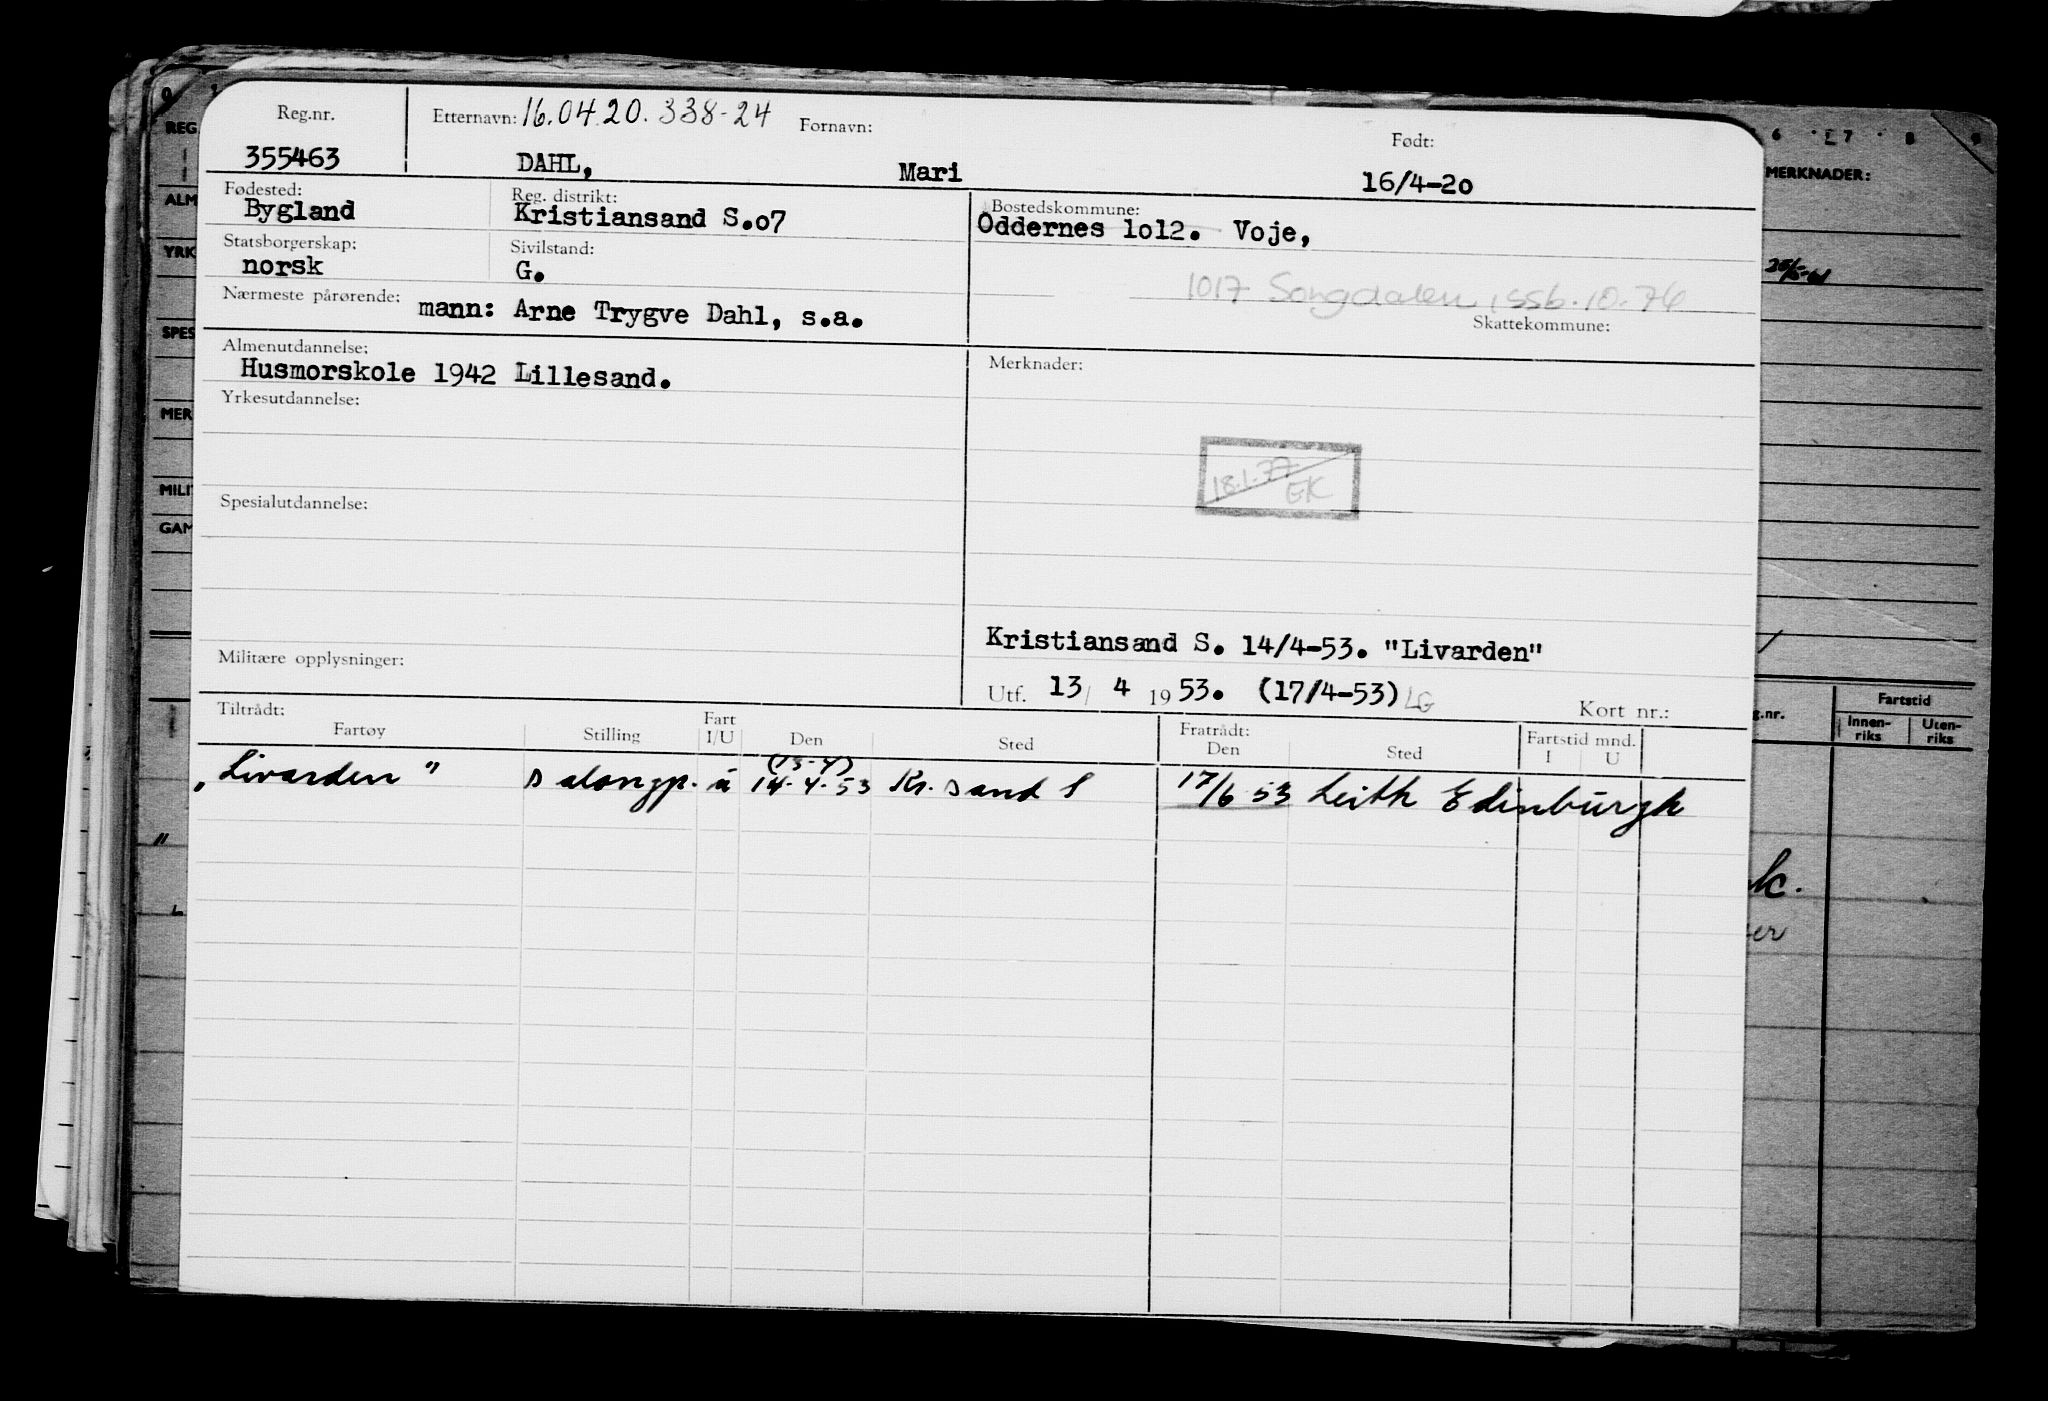 Reg.nr. Etternavn: 16.04.20.338-24 Fornavn: Født:
355463 DAHL, Mari 16/4-20
Fødested: Reg. distrikt: Bostedskommune:
Bygland Kristiansand S.o7 Oddernes 1o12. Voje,
Statsborgerskap: Sivilstand:
norsk G.
1017 Songdalen, ssb.10.76
Nærmeste pårørende: mann: Arne Trygve Dahl, s.a.
Skattekommune:
Almenutdannelse: Merknader:
Husmorskole 1942 Lillesand.
Yrkesutdannelse:
18.1.77
GK
Spesialutdannelse:
Kristiansand S. 14/4-53. "Livarden"
Militære opplysninger:
Utf. 13/ 4 1953. (17/4-53) LG
Kort nr.:
Tiltrådt: Fart Fratrådt: Fartstid mnd.
Fartøy Stilling I/U Den Sted Den Sted I U
(13-4)
"Livarden" Salongp. u 14-4-53 Kr.sand S 17/6 53 Leith Edinburgh
REG
ALM
YRK
SPES
MER
MILI
GAM
6 7 8 9
MERKNADER:
g.nr. Fartstid
Innen-
riks
Uten-
riks
k.
er